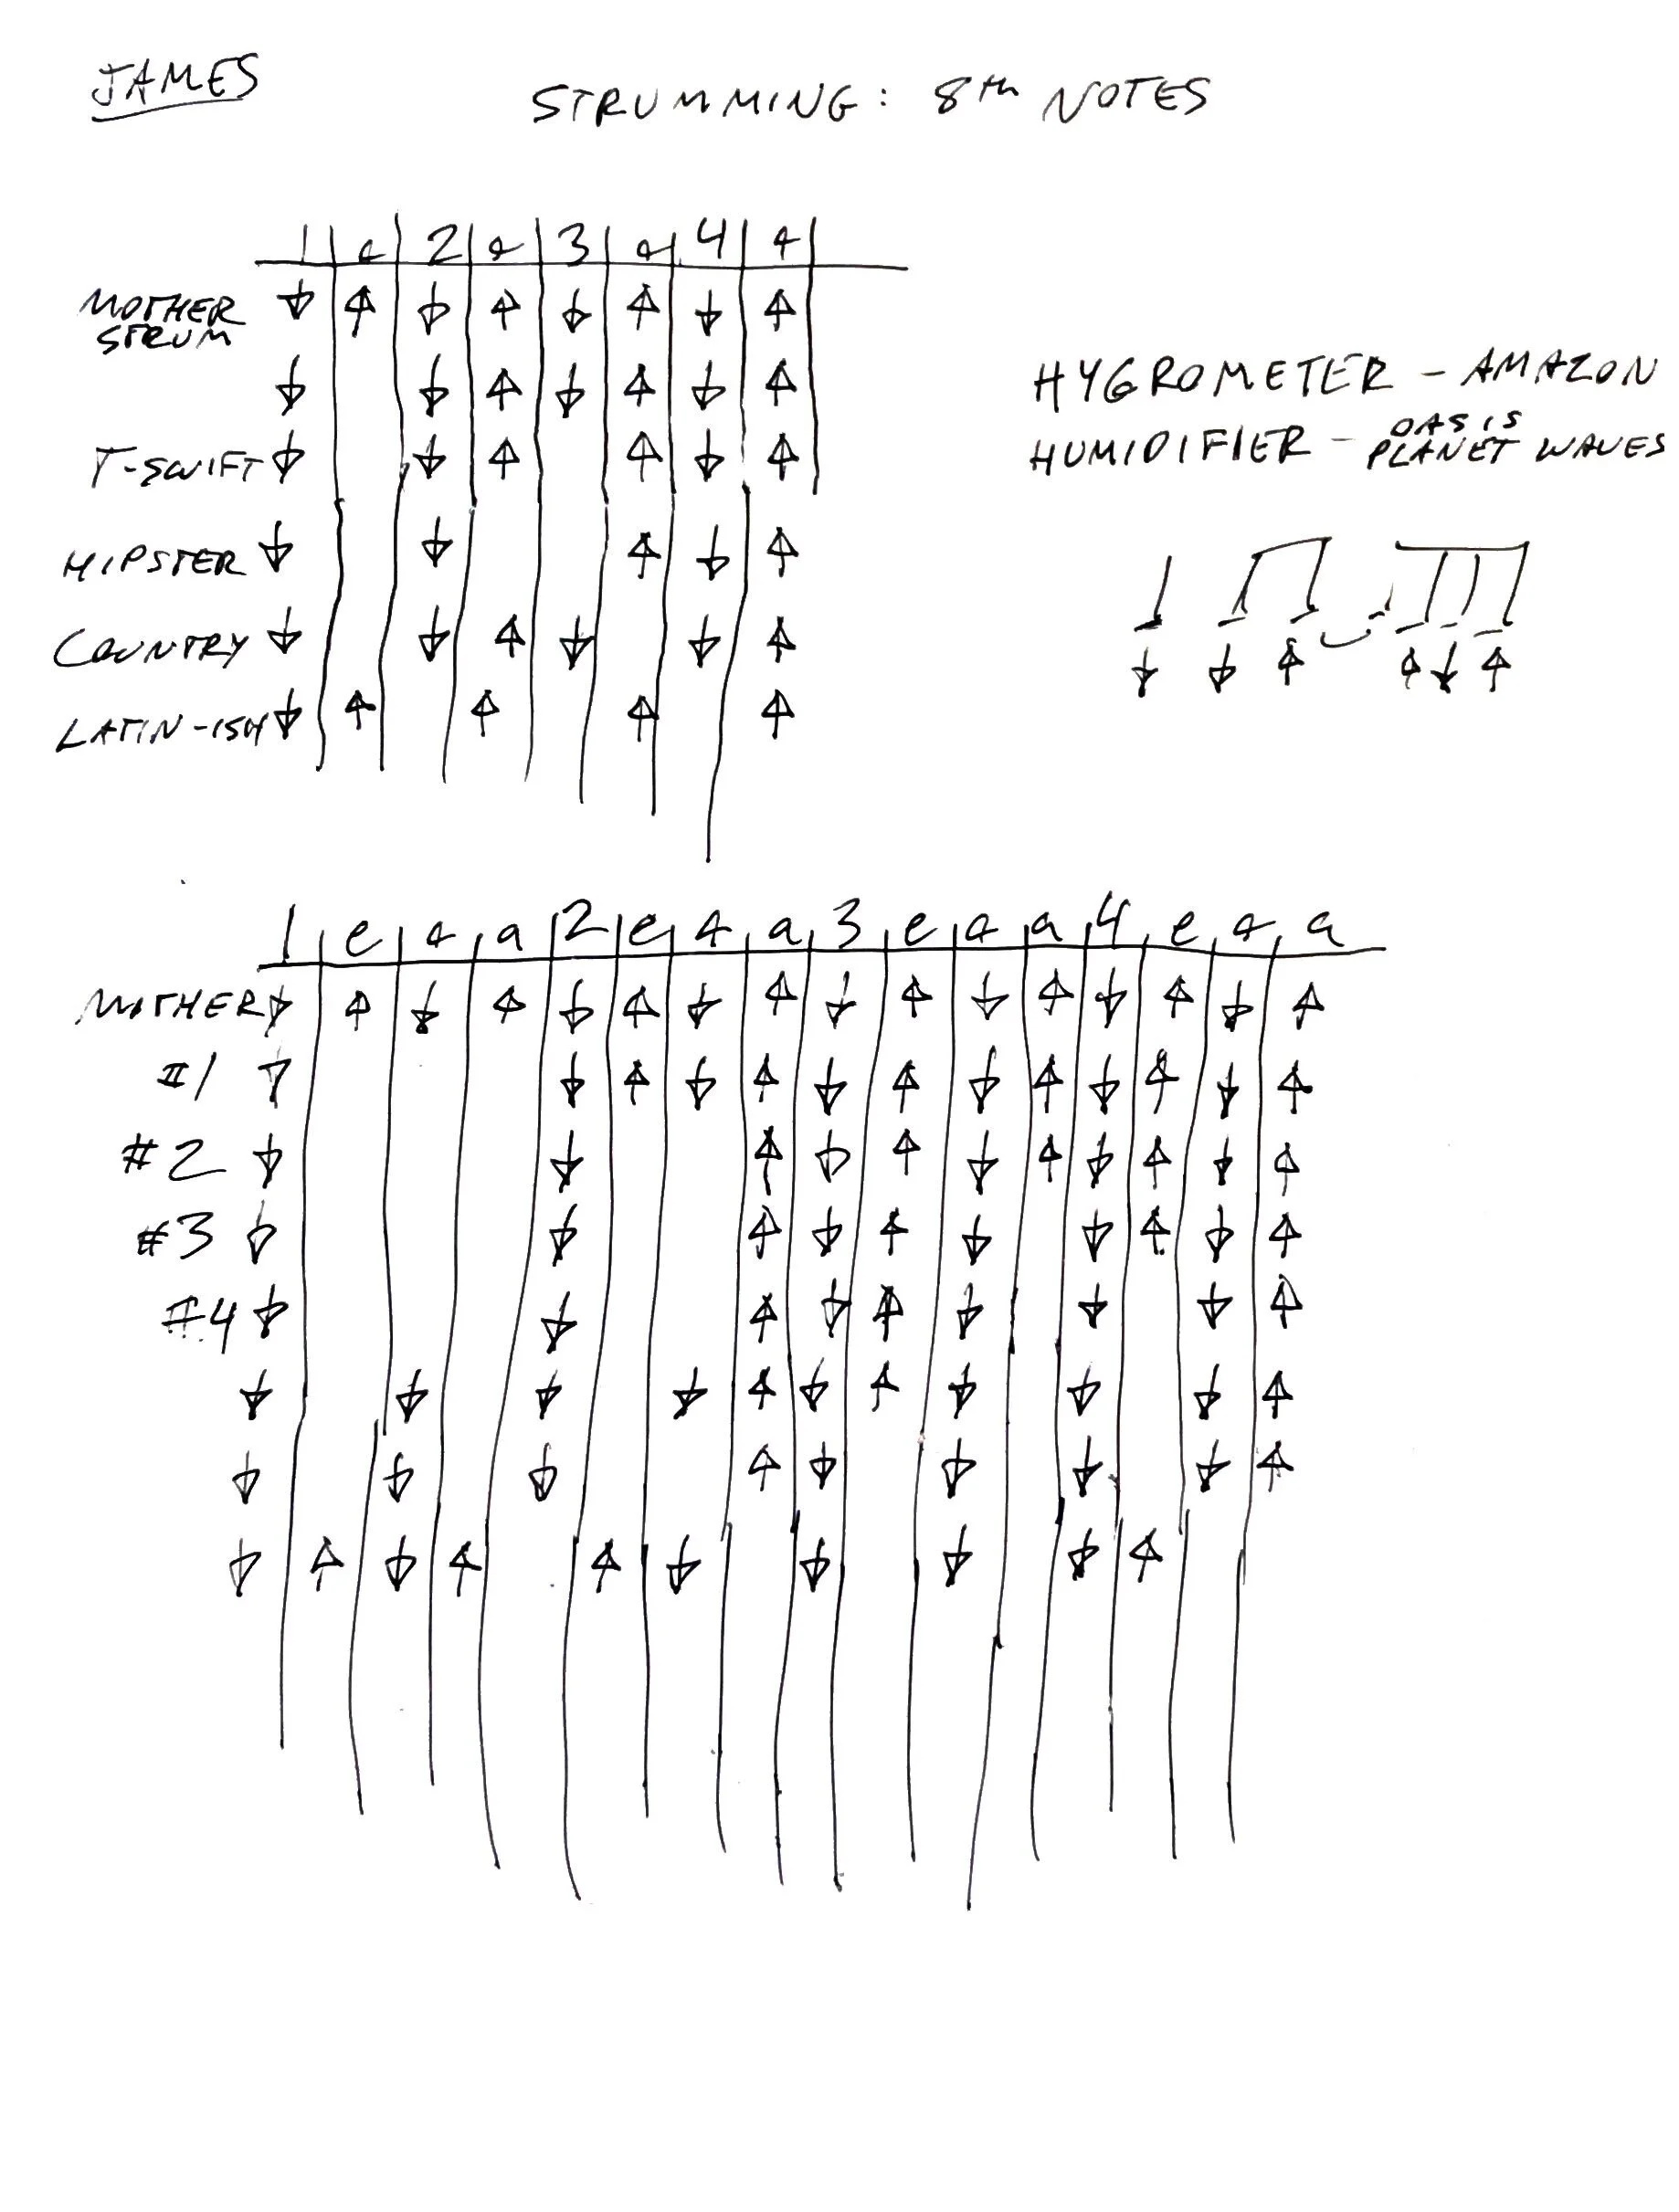 JAMES
STRUMMING: 8th NOTES
1 & 2 & 3 & 4 &
MOTHER STRUM ↓ ↑ ↓ ↑ ↓ ↑ ↓ ↑
↓ ↓ ↑ ↓ ↑ ↓ ↑
T-SWIFT ↓ ↓ ↑ ↑ ↓ ↑
HIPSTER ↓ ↓ ↑ ↓ ↑
COUNTRY ↓ ↓ ↑ ↓ ↓ ↑
LATIN-ISH ↓ ↑ ↑ ↑ ↑
HYGROMETER - AMAZON
HUMIDIFIER - OASIS
PLANET WAVES
↓ ↓ ↑ ↑ ↓ ↑
1 e & a 2 e & a 3 e & a 4 e & a
MOTHER ↓ ↑ ↓ ↑ ↓ ↑ ↓ ↑ ↓ ↑ ↓ ↑ ↓ ↑ ↓ ↑
#1 ↓ ↓ ↑ ↓ ↑ ↓ ↑ ↓ ↑ ↓ ↑ ↓ ↑
#2 ↓ ↓ ↑ ↓ ↑ ↓ ↑ ↓ ↑ ↓ ↑
#3 ↓ ↓ ↑ ↓ ↑ ↓ ↓ ↑ ↓ ↑
#4 ↓ ↓ ↑ ↓ ↑ ↓ ↓ ↓ ↑
↓ ↓ ↓ ↓ ↑ ↓ ↑ ↓ ↓ ↓ ↑
↓ ↓ ↓ ↑ ↓ ↓ ↓ ↓ ↑
↓ ↑ ↓ ↑ ↑ ↓ ↓ ↓ ↓ ↑